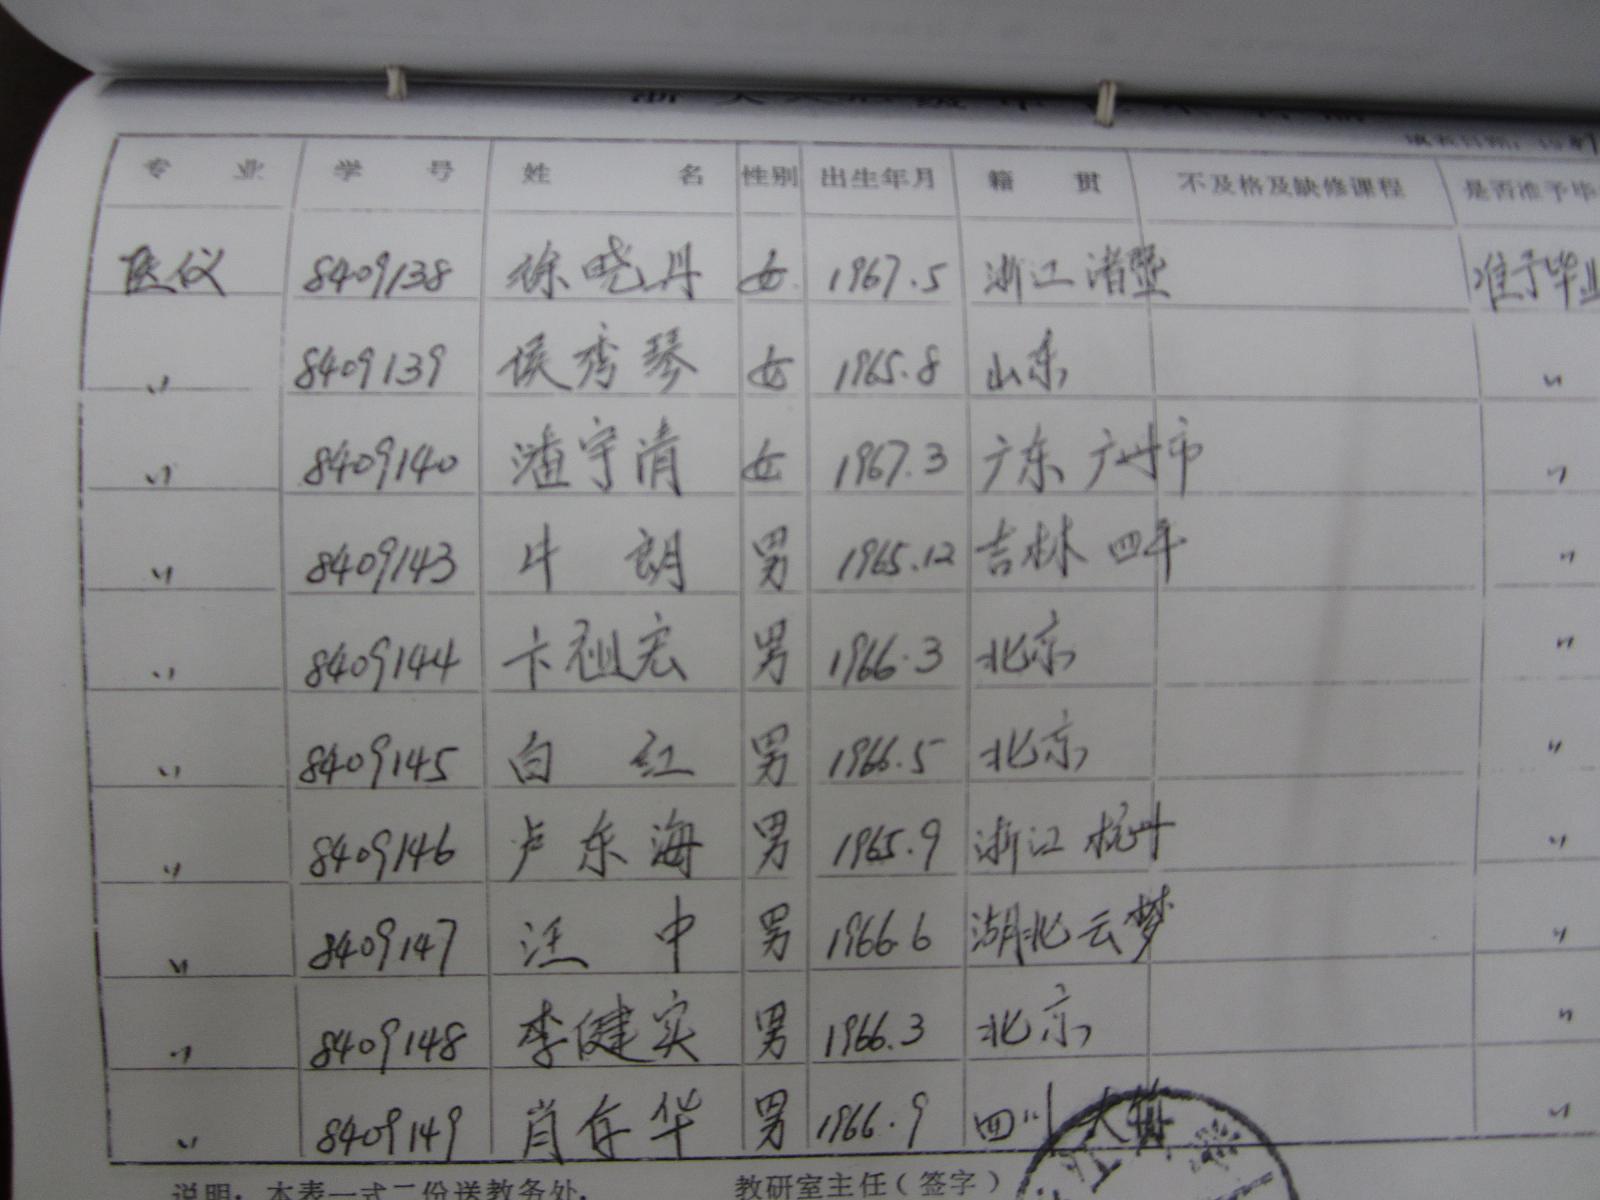 专 业 学 号 姓 名 性别 出生年月 籍 贯 不及格及缺修课程 是否准予毕
医仪 8409138 徐晓丹 女 1967.5 浙江渚暨 准予毕业
〃 8409139 侯秀琴 女 1965.8 山东 〃
〃 8409140 潘宇清 女 1967.3 广东 广州市 〃
〃 8409143 牛 朗 男 1965.12 吉林 四平 〃
〃 8409144 卞祖宏 男 1966.3 北京 〃
〃 8409145 白 红 男 1966.5 北京 〃
〃 8409146 卢东海 男 1965.9 浙江 杭州 〃
〃 8409147 汪 中 男 1966.6 湖北云梦 〃
〃 8409148 李健实 男 1966.3 北京 〃
〃 8409149 肖存华 男 1966.9 四川 大 〃
说明：本表一式二份送教务处。 教研室主任（签字）